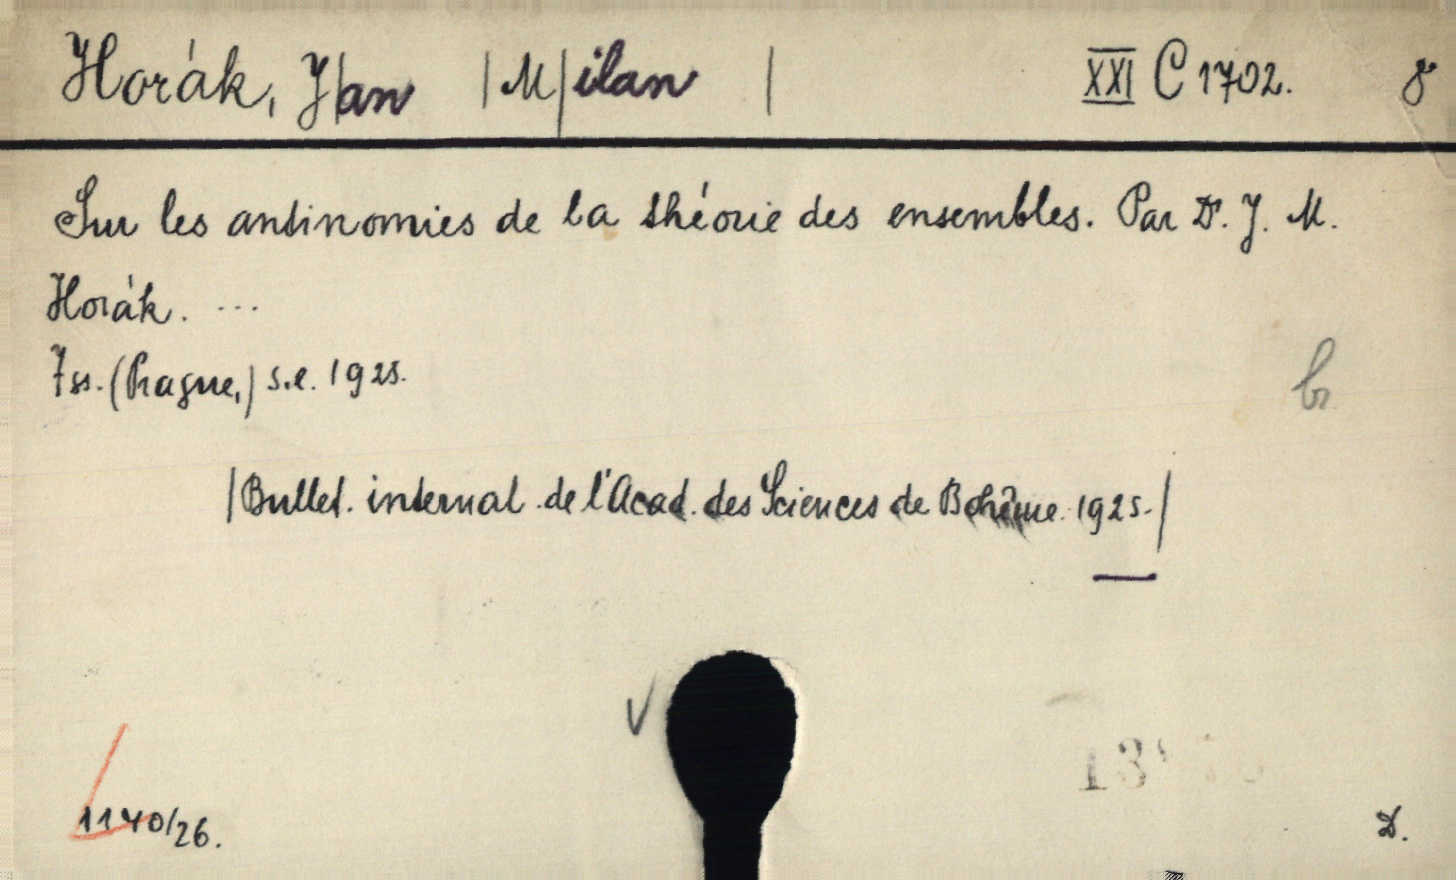 Horák, J|an |M|ilan | XXI C 1702. 8°
Sur les antinomies de la théorie des ensembles. Par Dr. J. M.
Horák. ...
7 ss. (Prague,) s.e. 1925.
br
|Bullet. internat. de l'Acad. des Sciences de Bohême. 1925.|
1140/26.
D.